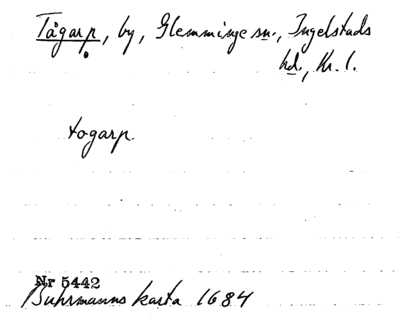 Tågarp, by, Glemminge sn., Ingelstads
hd., Kr. l.
togarp.
Nr 5442
Buhrmanns karta 1684